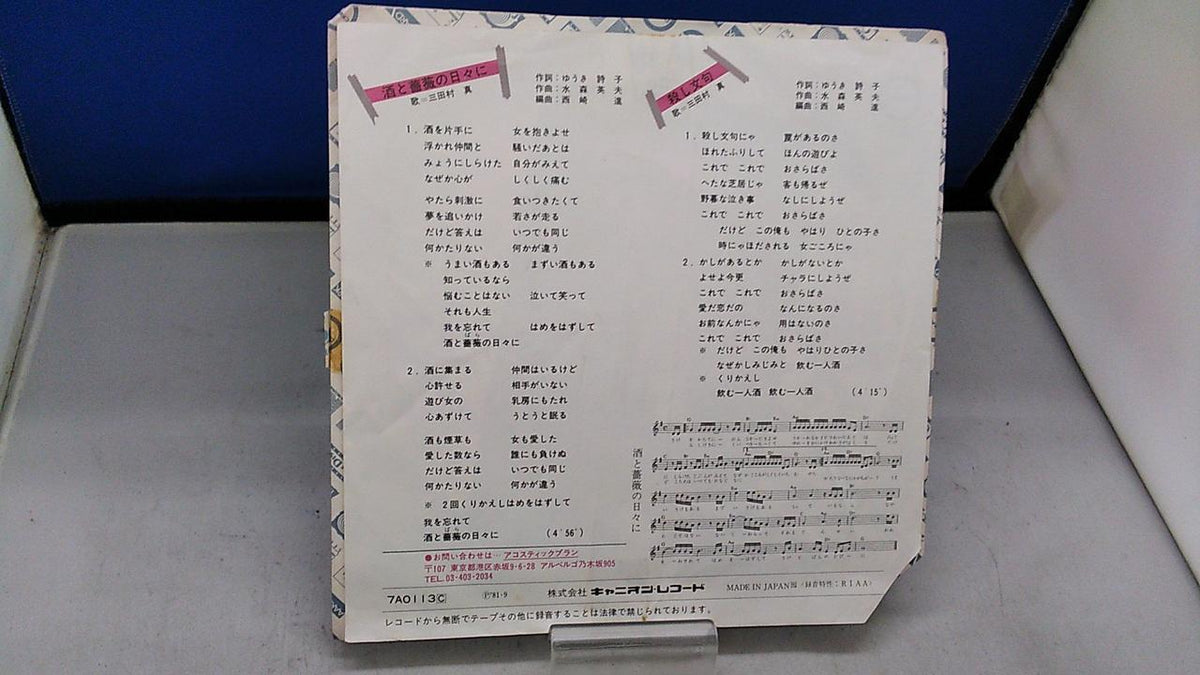 酒と薔薇の日々に
歌=三田村 真
作詞:ゆうき 詩子
作曲:水森英夫
編曲:西崎 進
1. 酒を片手に 女を抱きよせ
浮かれ仲間と 騒いだあとは
みょうにしらけた 自分がみえて
なぜか心が しくしく痛む
やたら刺激に 食いつきたくて
夢を追いかけ 若さが走る
だけど答えは いつでも同じ
何かたりない 何かが違う
※ うまい酒もある まずい酒もある
知っているなら
悩むことはない 泣いて笑って
それも人生
我を忘れて はめをはずして
ばら
酒と薔薇の日々に
2. 酒に集まる 仲間はいるけど
心許せる 相手がいない
遊び女の 乳房にもたれ
心あずけて うとうと眠る
酒も煙草も 女も愛した
愛した数なら 誰にも負けぬ
だけど答えは いつでも同じ
何かたりない 何かが違う
※ 2回くりかえしはめをはずして
我を忘れて
ばら
酒と薔薇の日々に (4′56″)
●お問い合わせは…アコスティックプラン
〒107 東京都港区赤坂9-6-28 アルベルゴ乃木坂905
TEL.03-403-2034
殺し文句
歌=三田村 真
作詞:ゆうき 詩子
作曲:水森英夫
編曲:西崎 進
1. 殺し文句にゃ 罠があるのさ
ほれたふりして ほんの遊びよ
これで これで おさらばさ
へたな芝居じゃ 客も帰るぜ
野暮な泣き事 なしにしようぜ
これで これで おさらばさ
だけど この俺も やはり ひとの子さ
時にゃほだされる 女ごころにゃ
2. かしがあるとか かしがないとか
よせよ今更 チャラにしようぜ
これで これで おさらばさ
愛だ恋だの なんになるのさ
お前なんかにゃ 用はないのさ
これで これで おさらばさ
※ だけど この俺も やはりひとの子さ
なぜかしみじみと 飲む一人酒
※ くりかえし
飲む一人酒 飲む一人酒 (4′15″)
酒と薔薇の日々に
7A0113Ⓒ Ⓟ'81・9 株式会社 キャニオン・レコード MADE IN JAPAN (録音特性:RIAA)
レコードから無断でテープその他に録音することは法律で禁じられております。